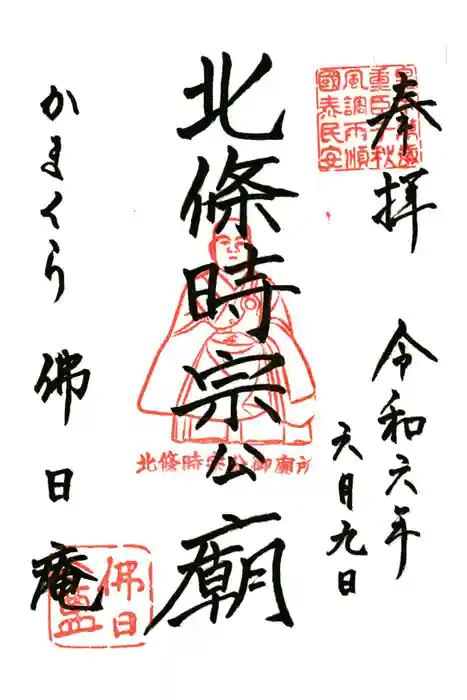 奉拝
令和六年
六月九日
重臣千秋
風調雨順
國泰民安
北條時宗公廟
北條時宗公御廟所
かまくら 佛日庵
佛日